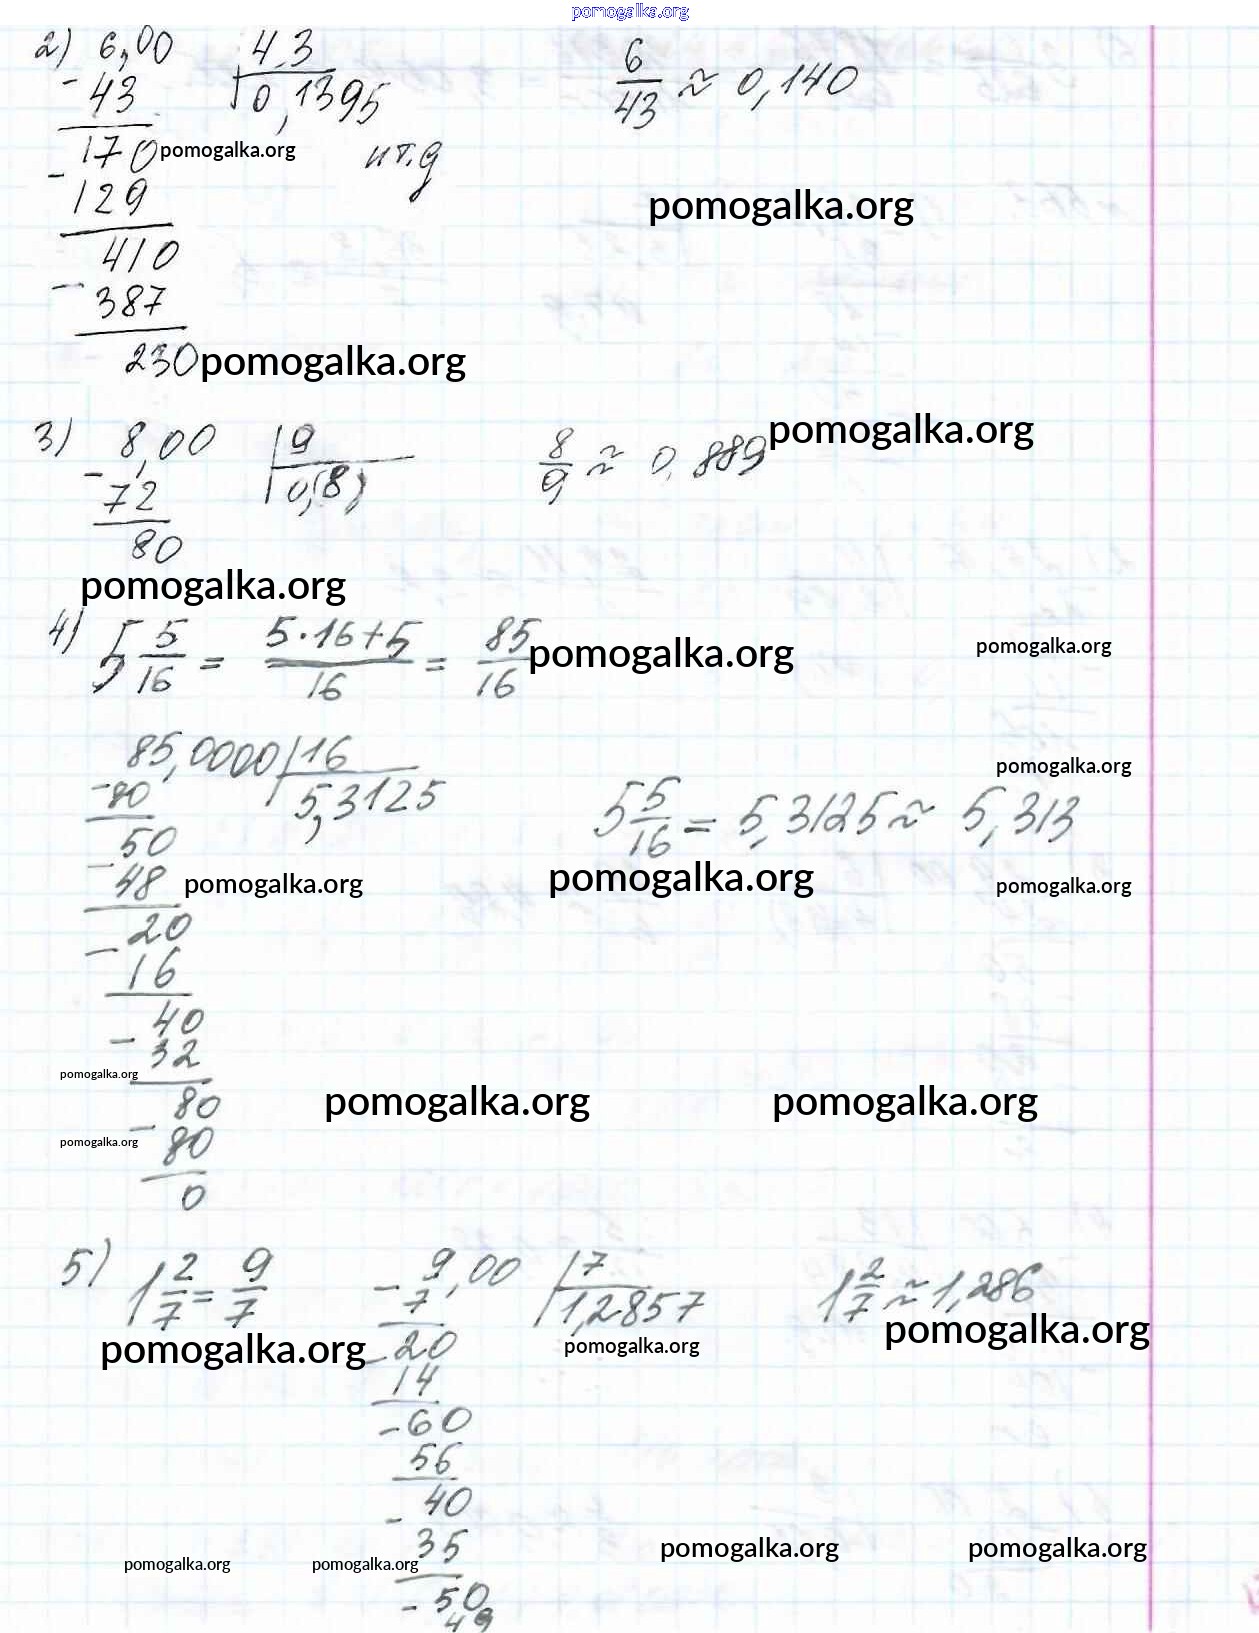 pomogalka.org
2) 6,00 | 43 6/43 ≈ 0,140
- 43 0,1395
170 pomogalka.org и т.д
- 129 pomogalka.org
410
- 387
230 pomogalka.org
3) 8,00 | 9 8/9 ≈ 0,889 pomogalka.org
- 72 0,(8)
80
pomogalka.org
4) 5 5/16 = (5·16+5)/16 = 85/16 pomogalka.org pomogalka.org
85,0000 | 16 pomogalka.org
- 80 5,3125 5 5/16 = 5,3125 ≈ 5,313
50
- 48 pomogalka.org pomogalka.org pomogalka.org
20
- 16
40
- 32
pomogalka.org
80 pomogalka.org pomogalka.org
- 80
pomogalka.org
0
5) 1 2/7 = 9/7 9,00 | 7 1 2/7 ≈ 1,286
- 7 1,2857 pomogalka.org
pomogalka.org - 20 pomogalka.org
14
- 60
56
- 40
35 pomogalka.org pomogalka.org
pomogalka.org pomogalka.org
- 50
49